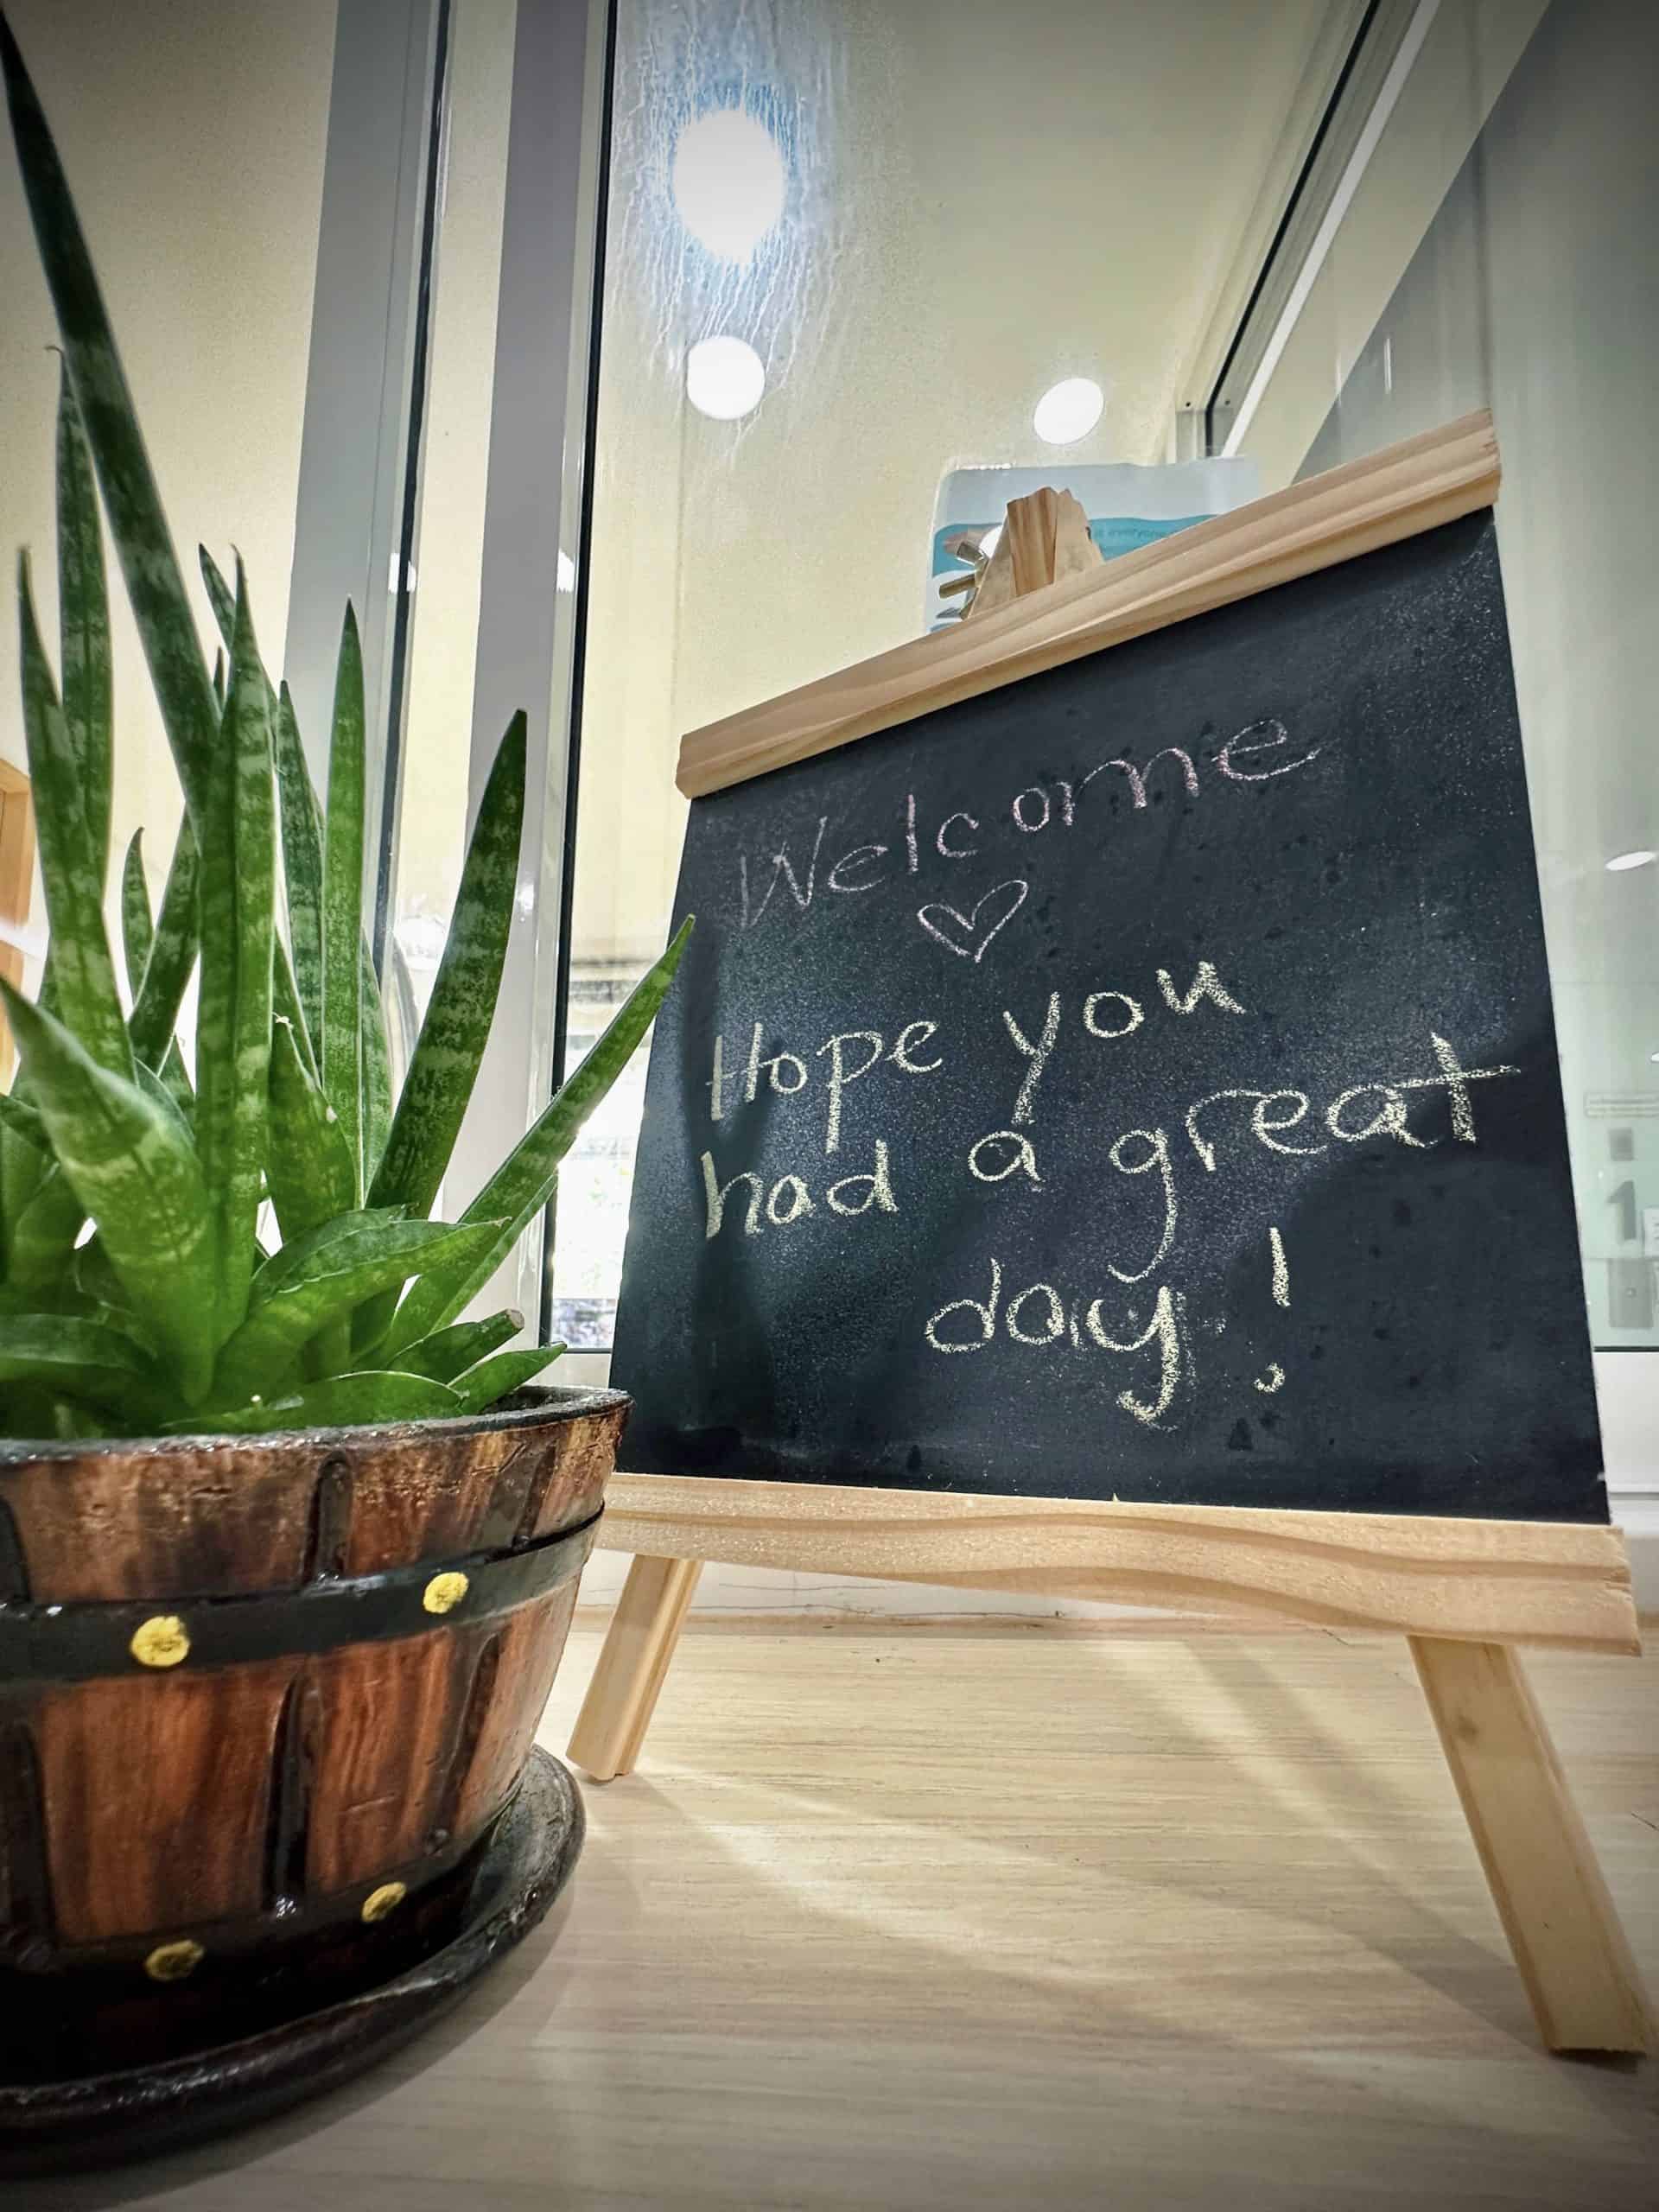 Welcome
♡
Hope you
had a great
day!
1